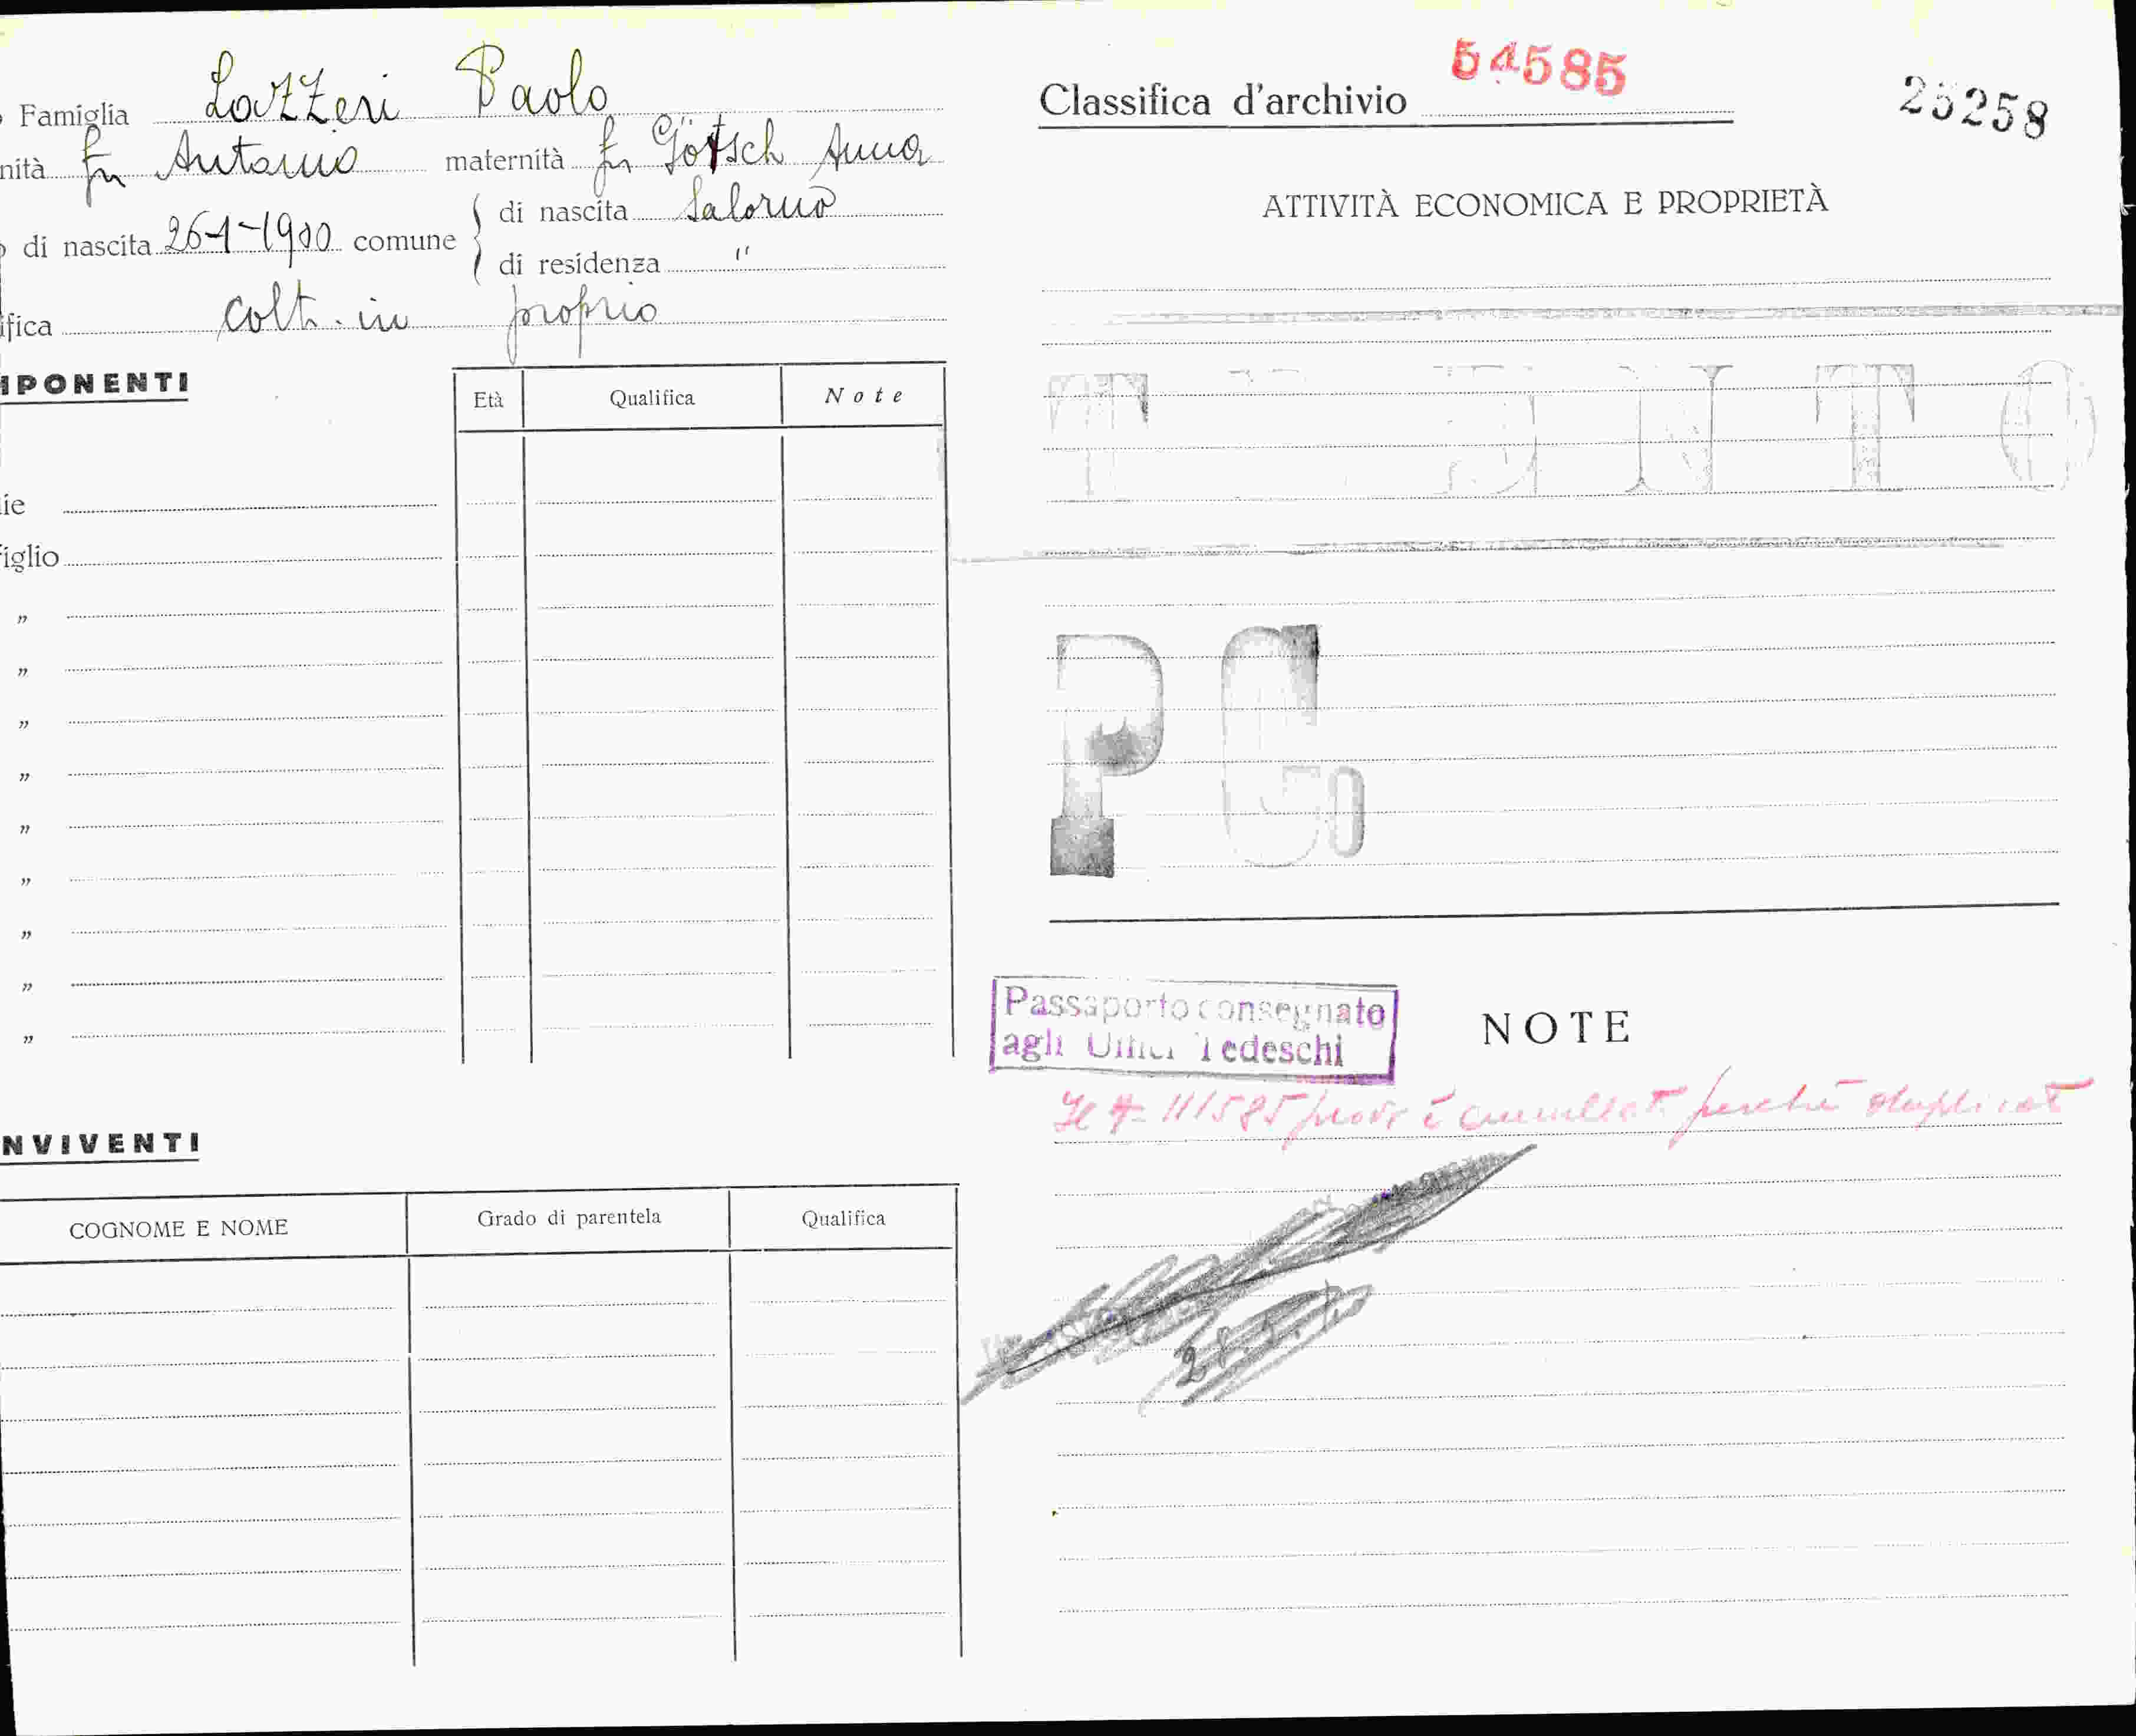 Famiglia Lazzeri Paolo
nità fu Antonio maternità fu Götsch Anna
di nascita 26-1-1900 comune
di nascita Salorno
di residenza "
ifica colt. in proprio
IPONENTI
Età Qualifica Note
ie
iglio
"
"
"
"
"
"
"
"
"
NVIVENTI
COGNOME E NOME Grado di parentela Qualifica
Classifica d'archivio 54585
25258
ATTIVITÀ ECONOMICA E PROPRIETÀ
P C.
Passaporto consegnato
agli Uffici Tedeschi
NOTE
111585 è perché duplicato